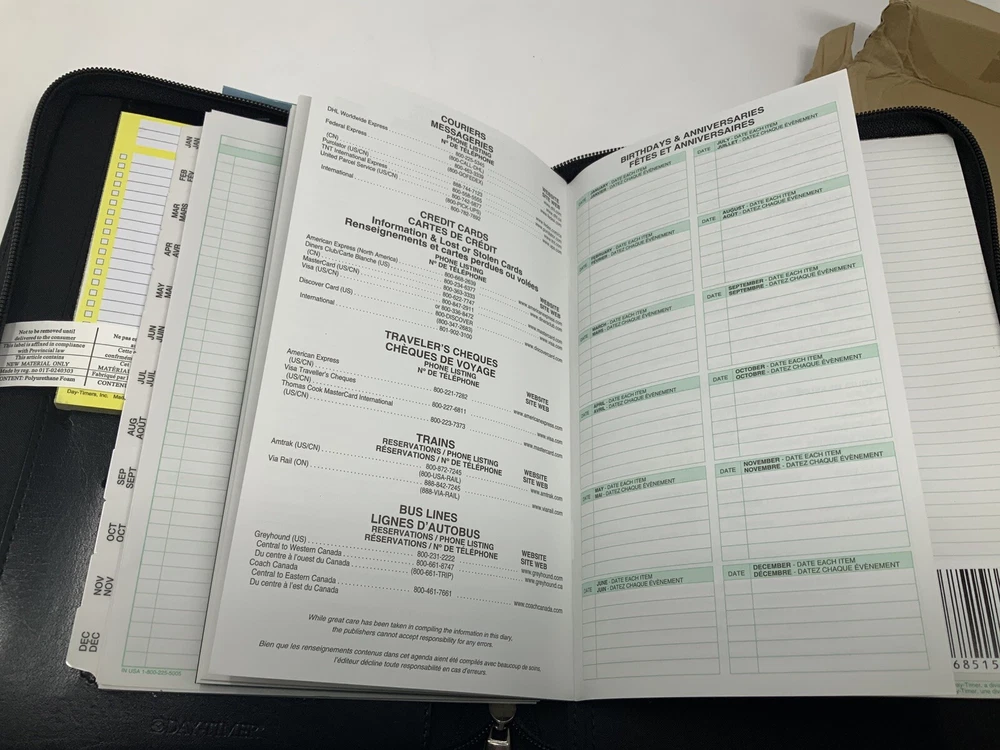 COURIERS
MESSAGERIES
PHONE LISTING
N° DE TÉLÉPHONE
DHL Worldwide Express
Federal Express
(CN)
Purolator (US/CN)
TNT International Express
United Parcel Service (US/CN)
International
(800-CALL-DHL)
(800-GOFEDEX)
888-744-7123
(800-PICK-UPS)
WEBSITE
SITE WEB
CREDIT CARDS
CARTES DE CRÉDIT
Information & Lost or Stolen Cards
Renseignements et cartes perdues ou volées
PHONE LISTING
N° DE TÉLÉPHONE
WEBSITE
SITE WEB
American Express (North America)
Diners Club/Carte Blanche (US)
(CN)
MasterCard (US/CN)
Visa (US/CN)
Discover Card (US)
International
800-234-6377
800-363-3333
800-622-7747
800-847-2911
or 800-336-8472
800-DISCOVER
(800-347-2683)
801-902-3100
www.mastercard.com
www.visa.com
www.discovercard.com
TRAVELER'S CHEQUES
CHÈQUES DE VOYAGE
PHONE LISTING
N° DE TÉLÉPHONE
WEBSITE
SITE WEB
American Express
(US/CN) 800-221-7282 www.americanexpress.com
Visa Traveller's Cheques
(US/CN) 800-227-6811 www.visa.com
Thomas Cook MasterCard International
(US/CN) 800-223-7373 www.mastercard.com
TRAINS
RESERVATIONS / PHONE LISTING
RÉSERVATIONS / N° DE TÉLÉPHONE
WEBSITE
SITE WEB
Amtrak (US/CN) 800-872-7245 www.amtrak.com
(800-USA-RAIL)
Via Rail (ON) 888-842-7245 www.viarail.com
(888-VIA-RAIL)
BUS LINES
LIGNES D'AUTOBUS
RESERVATIONS / PHONE LISTING
RÉSERVATIONS / N° DE TÉLÉPHONE
WEBSITE
SITE WEB
Greyhound (US) 800-231-2222 www.greyhound.com
Central to Western Canada 800-661-8747 www.greyhound.ca
Du centre à l'ouest du Canada (800-661-TRIP)
Coach Canada
Central to Eastern Canada 800-461-7661 www.coachcanada.com
Du centre à l'est du Canada
While great care has been taken in compiling the information in this diary,
the publishers cannot accept responsibility for any errors.
Bien que les renseignements contenus dans cet agenda aient été compilés avec beaucoup de soins,
l'éditeur décline toute responsabilité en cas d'erreurs.
BIRTHDAYS & ANNIVERSARIES
FÊTES ET ANNIVERSAIRES
DATE JANUARY - DATE EACH ITEM
JANVIER - DATEZ CHAQUE ÉVÉNEMENT
DATE FEBRUARY - DATE EACH ITEM
FÉVRIER - DATEZ CHAQUE ÉVÉNEMENT
DATE MARCH - DATE EACH ITEM
MARS - DATEZ CHAQUE ÉVÉNEMENT
DATE APRIL - DATE EACH ITEM
AVRIL - DATEZ CHAQUE ÉVÉNEMENT
DATE MAY - DATE EACH ITEM
MAI - DATEZ CHAQUE ÉVÉNEMENT
DATE JUNE - DATE EACH ITEM
JUIN - DATEZ CHAQUE ÉVÉNEMENT
DATE JULY - DATE EACH ITEM
JUILLET - DATEZ CHAQUE ÉVÉNEMENT
DATE AUGUST - DATE EACH ITEM
AOÛT - DATEZ CHAQUE ÉVÉNEMENT
DATE SEPTEMBER - DATE EACH ITEM
SEPTEMBRE - DATEZ CHAQUE ÉVÉNEMENT
DATE OCTOBER - DATE EACH ITEM
OCTOBRE - DATEZ CHAQUE ÉVÉNEMENT
DATE NOVEMBER - DATE EACH ITEM
NOVEMBRE - DATEZ CHAQUE ÉVÉNEMENT
DATE DECEMBER - DATE EACH ITEM
DÉCEMBRE - DATEZ CHAQUE ÉVÉNEMENT
JAN
JAN
FEB
FÉV
MAR
MARS
APR
AVR
MAY
MAI
JUN
JUIN
JUL
JUIL
AUG
AOÛT
SEP
SEPT
OCT
OCT
NOV
NOV
DEC
DÉC
Not to be removed until
delivered to the consumer
This label is affixed in compliance
with Provincial law
This article contains
NEW MATERIAL ONLY
Made by reg. no 01T-0240303
CONTENT: Polyurethane Foam
Ne pas
Cette
MATÉRIA
Fabriqué par
CONTEN
Day-Timers, Inc.
IN USA 1-800-225-5005
DAY-TIMER
68515